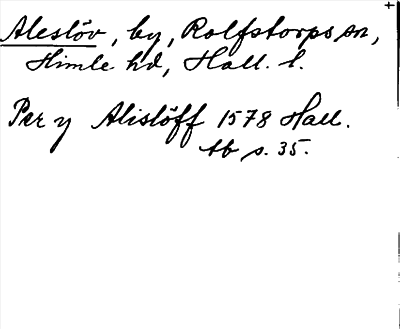 Aleslöv, by, Rolfstorps sn,
Himle hd, Hall. l.
Per y Alislöff 1578 Hall.
tb s. 35.